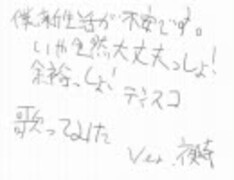 僕新生活が不安です。
いや全然大丈夫っしょ!
余裕っしょ!
ディスコ
歌ってみた
Ver.